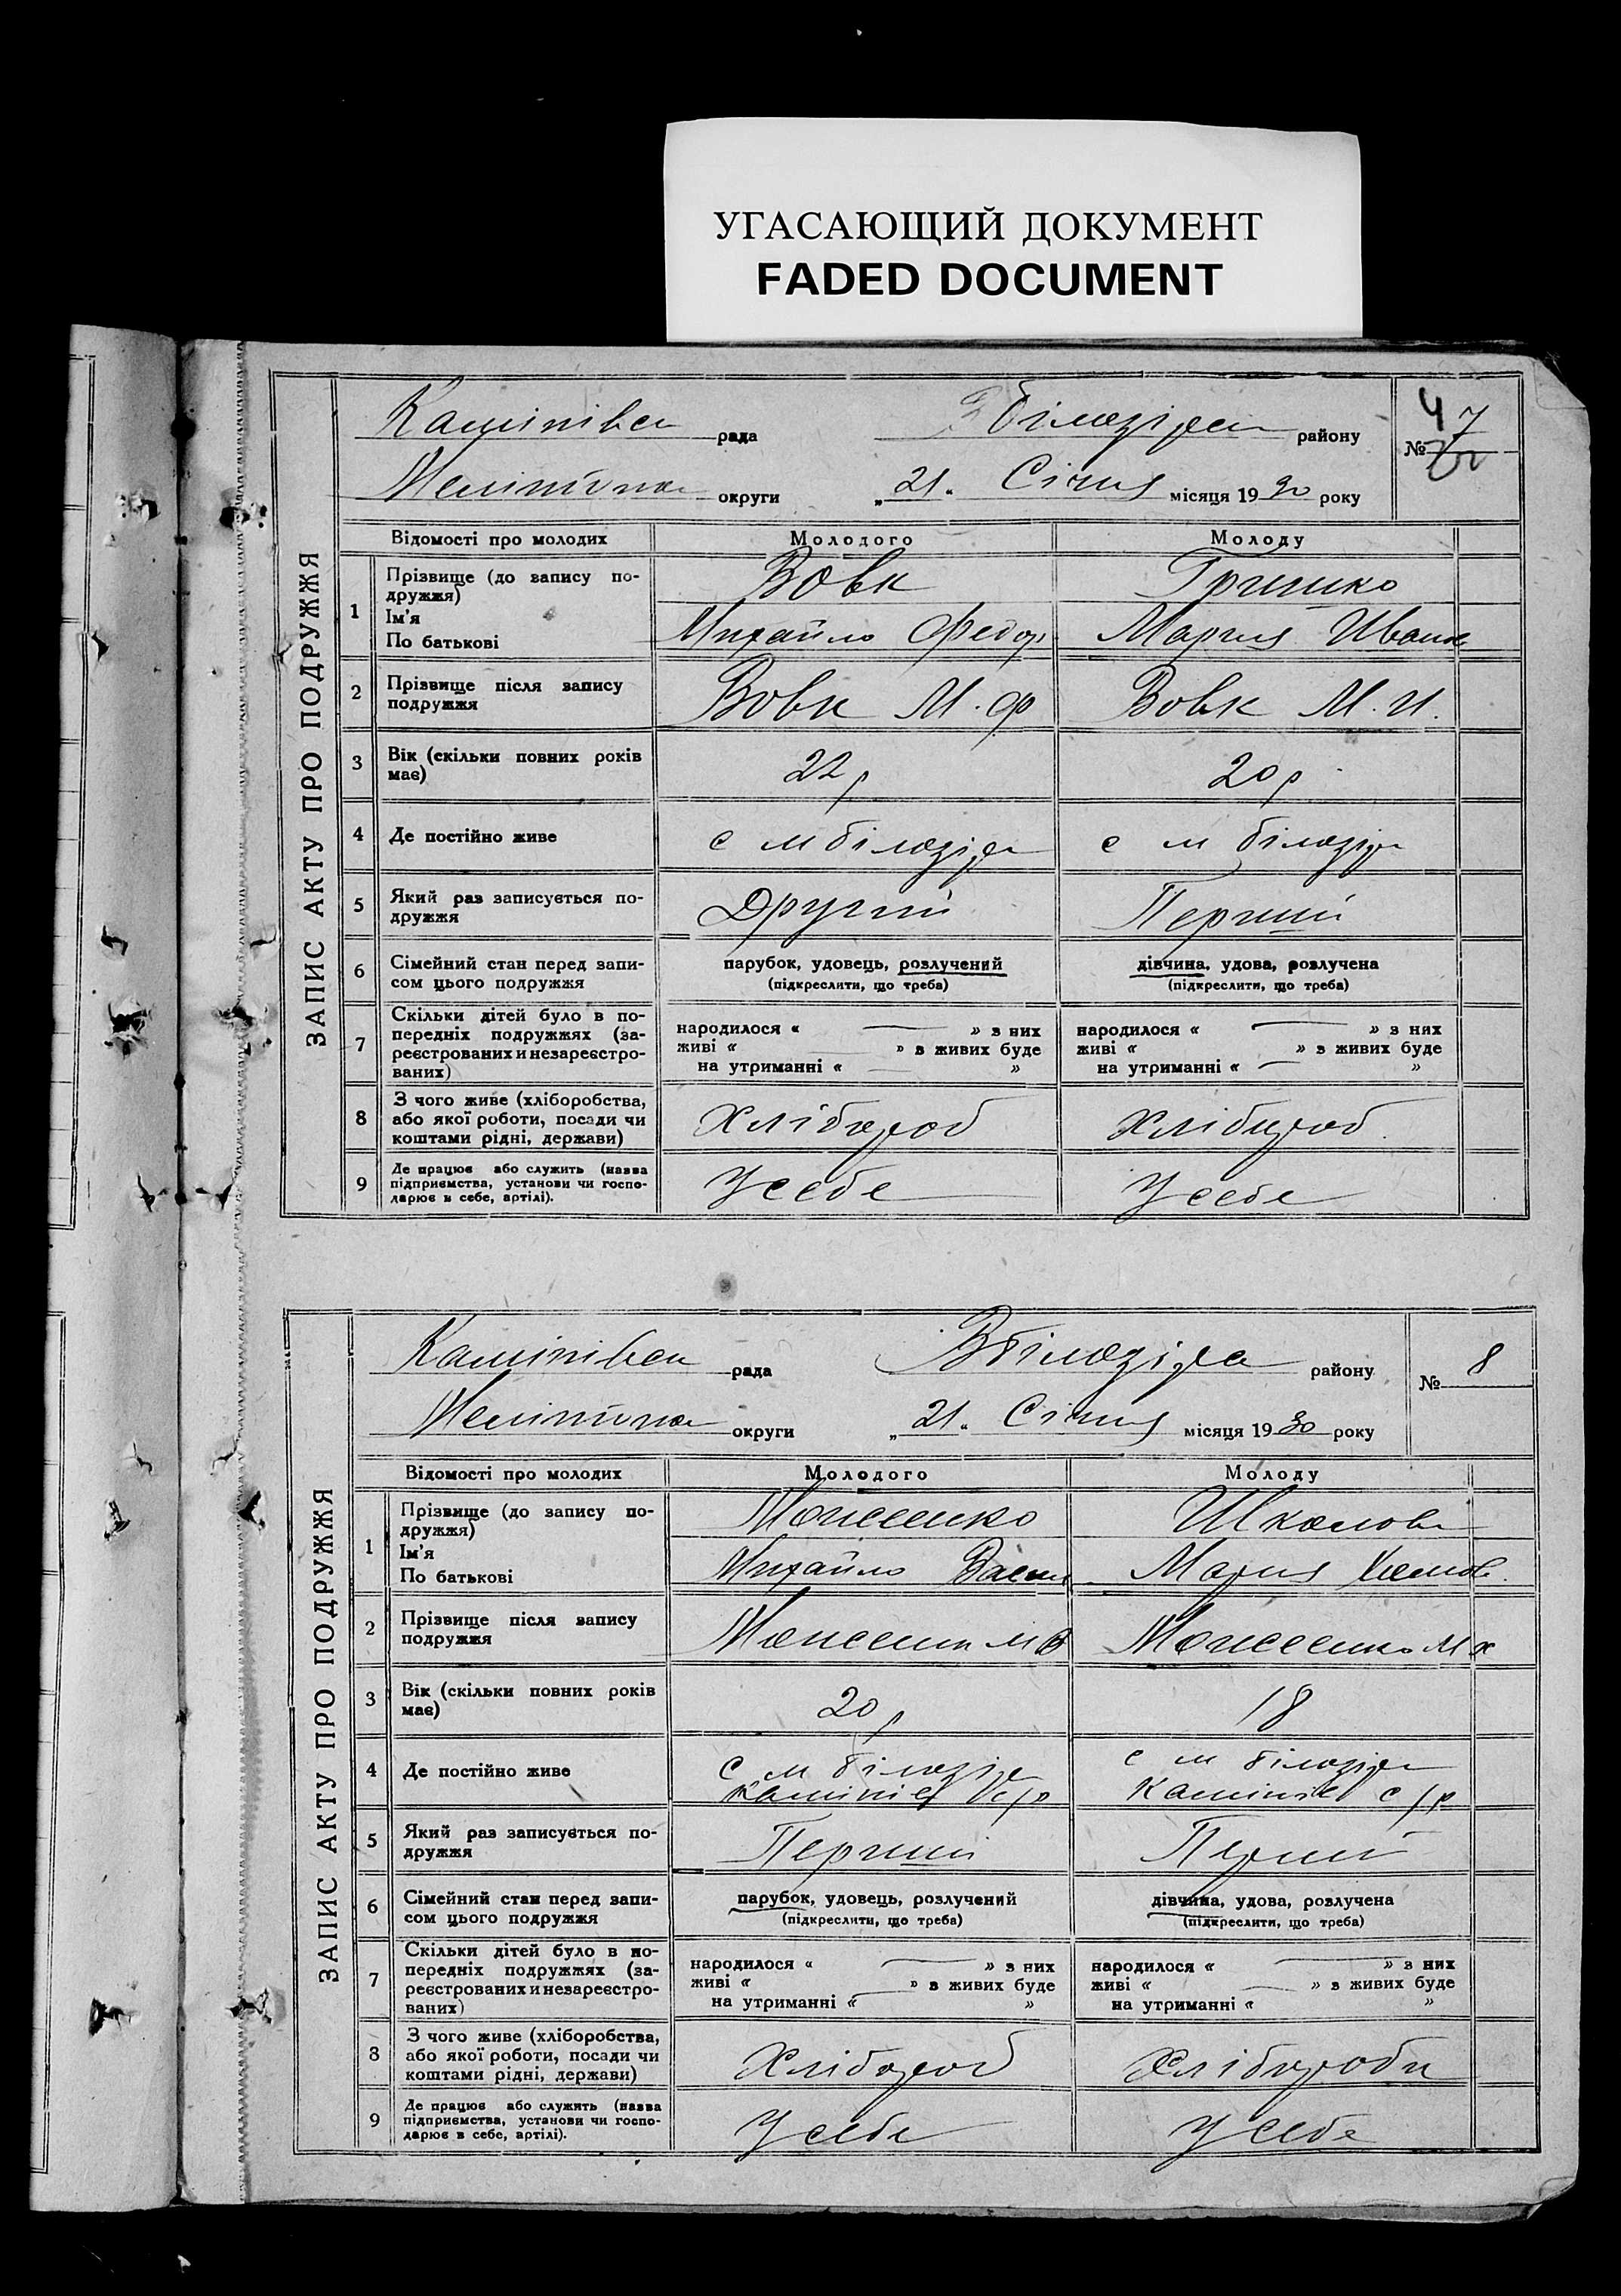 УГАСАЮЩИЙ ДОКУМЕНТ
FADED DOCUMENT
ЗАПИС АКТУ ПРО ПОДРУЖЖЯ
рада району № 7
4
округи „21“ Січня місяця 1930 року
Відомості про молодих Молодого Молоду
1 Прізвище (до запису по-
дружжя) Вовк Гришко
Ім'я
По батькові Михайло Федор Мария Иван
2 Прізвище після запису
подружжя Вовк М. Ф Вовк М. И.
3 Вік (скільки повних років
має) 22 р 20 р
4 Де постійно живе с м білозірка с м білозірка
5 Який раз записується по-
дружжя Другий Перший
6 Сімейний стан перед запи-
сом цього подружжя
парубок, удовець, розлучений дівчина, удова, розлучена
(підкреслити, що треба) (підкреслити, що треба)
7 Скільки дітей було в по-
передніх подружжях (за-
реєстрованих и незареєстро-
ваних)
народилося « — » з них народилося « — » з них
живі « » в живих буде живі « » в живих буде
на утриманні « — » на утриманні « — »
8 З чого живе (хліборобства,
або якої роботи, посади чи
коштами рідні, держави) Хлібороб Хлібороб
9 Де працює або служить (назва
підприємства, установи чи госпо-
дарює в себе, артілі). У себе У себе
ЗАПИС АКТУ ПРО ПОДРУЖЖЯ
рада району № 8
округи „21“ Січня місяця 1930 року
Відомості про молодих Молодого Молоду
1 Прізвище (до запису по-
дружжя)
Ім'я
По батькові Михайло Мария
2 Прізвище після запису
подружжя
3 Вік (скільки повних років
має) 20 р 18
4 Де постійно живе с м білозірка с м білозірка
с/р с/р
5 Який раз записується по-
дружжя Перший Перший
6 Сімейний стан перед запи-
сом цього подружжя
парубок, удовець, розлучений дівчина, удова, розлучена
(підкреслити, що треба) (підкреслити, що треба)
7 Скільки дітей було в по-
передніх подружжях (за-
реєстрованих и незареєстро-
ваних)
народилося « — » з них народилося « — » з них
живі « » в живих буде живі « — » в живих буде
на утриманні « — » на утриманні « »
8 З чого живе (хліборобства,
або якої роботи, посади чи
коштами рідні, держави) Хлібороб Хлібороби
9 Де працює або служить (назва
підприємства, установи чи госпо-
дарює в себе, артілі). У себе У себе